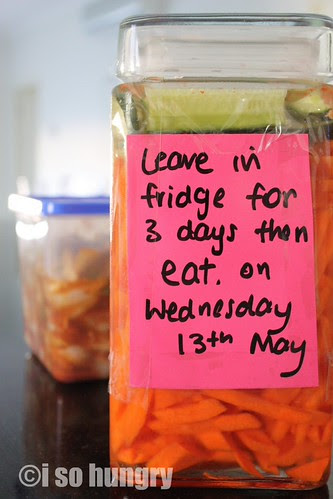 Leave in
fridge for
3 days then
eat. on
Wednesday
13th May
©i so hungry